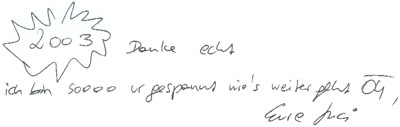 2003 Danke echt
ich bin soooo ur gespannt wie's weiter geht 04,
Eure